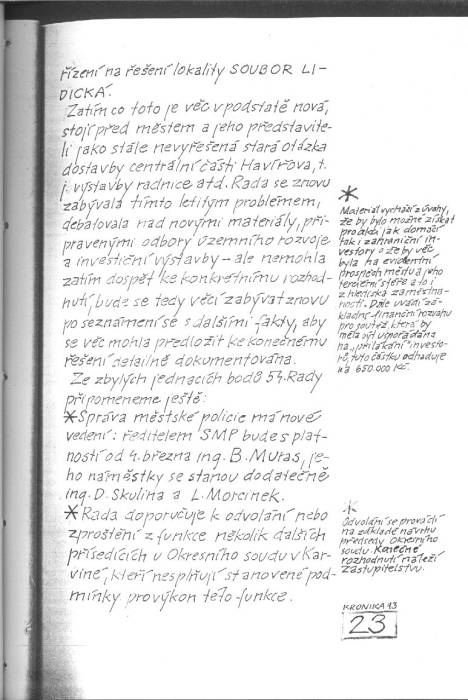 řízení na řešení lokality SOUBOR LI-
DICKÁ.
Zatím co toto je věc v podstatě nová,
stojí před městem a jeho představite-
li jako stále nevyřešená stará otázka
dostavby centrální části Havířova, t.
j. výstavby radnice atd. Rada se znovu
zabývala tímto letitým problémem,
debatovala nad novými materiály, při-
pravenými odbory územního rozvoje
a investiční výstavby – ale nemohla
zatím dospět ke konkrétnímu rozhod-
nutí, bude se tedy věcí zabývat znovu
po seznámení se s dalšími fakty, aby
se věc mohla předložit ke konečnému
řešení detailně dokumentována.
Ze zbylých jednacích bodů 54. Rady
připomeneme ještě:
* Správa městské policie má nové
vedení: ředitelem SMP bude s plat-
ností od 4. března ing. B. Muras, je-
ho náměstky se stanou dodatečně
ing. D. Skulina a L. Morcinek.
* Rada doporučuje k odvolání nebo
zproštění z funkce několik dalších
přísedících u Okresního soudu v Kar-
viné, kteří nesplňují stanovené pod-
mínky pro výkon této funkce.
*
Materiál vychází z úvahy,
že by bylo možné získat
pro akci jak domácí
tak i zahraniční in-
vestory a že by věc
byla na evidentní
prospěch městu a jeho
terciérní sféře a to i
z hlediska zaměstna-
nosti. Dále uvádí zá-
kladní finanční rozvahu
pro soutěž, která by
měla být uspořádána
na „přilákání" investo-
rů, tuto částku odhaduje
na 650.000 Kč.
*
Odvolání se provádí
na základě návrhu
předsedy Okresního
soudu. Konečné
rozhodnutí náleží
zastupitelstvu.
KRONIKA 93
23